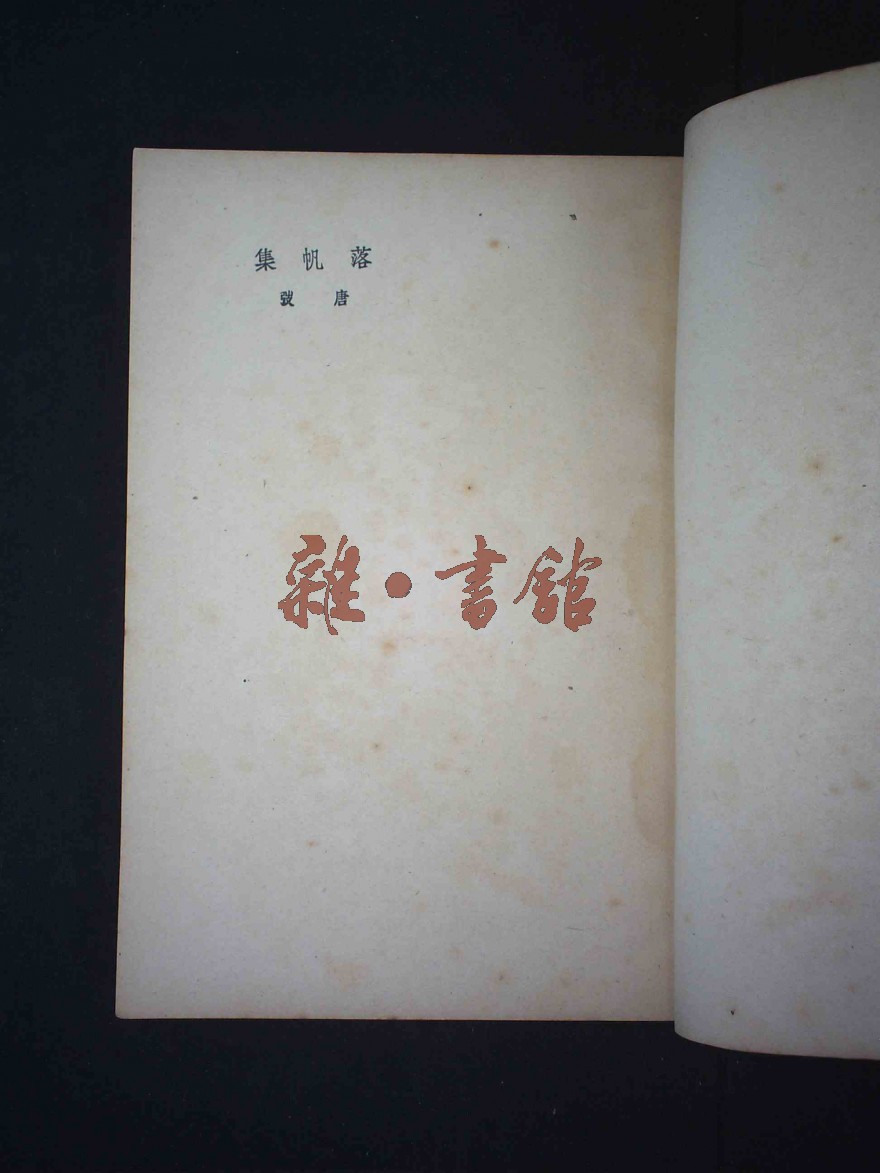 落帆集
唐弢
雜·書館